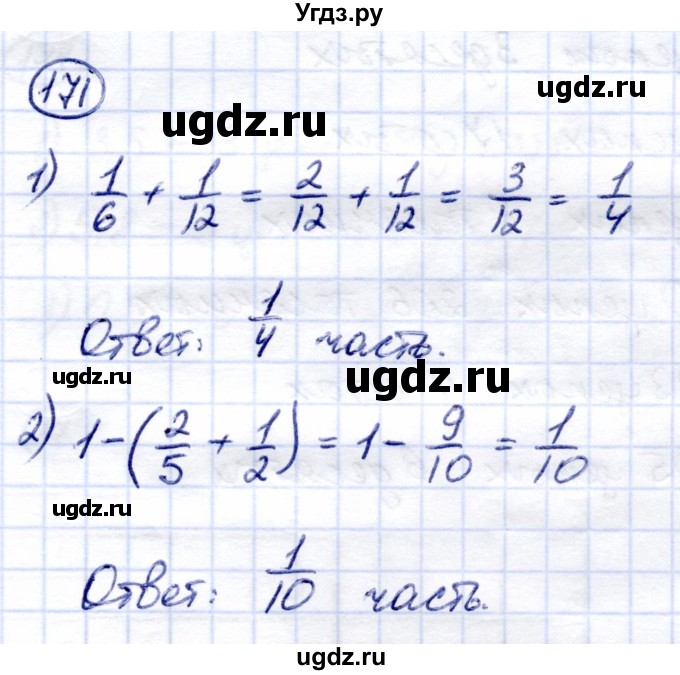 Угдз.ру
171
ugdz.ru
1) 1/6 + 1/12 = 2/12 + 1/12 = 3/12 = 1/4
Ответ: 1/4 часть.
ugdz.ru
ugdz.ru
2) 1-(2/5 + 1/2) = 1 - 9/10 = 1/10
ugdz.ru
Ответ: 1/10 часть.
ugdz.ru